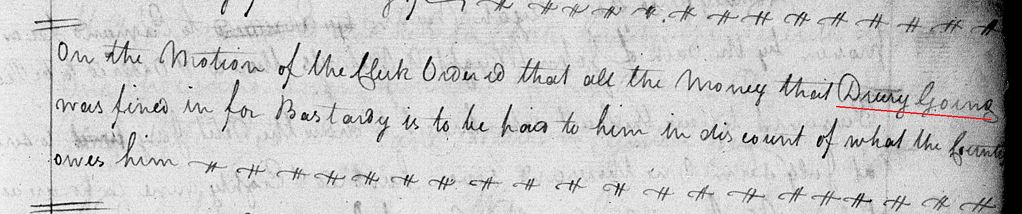 On the Motion of the Clerk Ordered that all the Money that Drury Going
was fined in for Bastardy is to be paid to him in discount of what the County
owes him